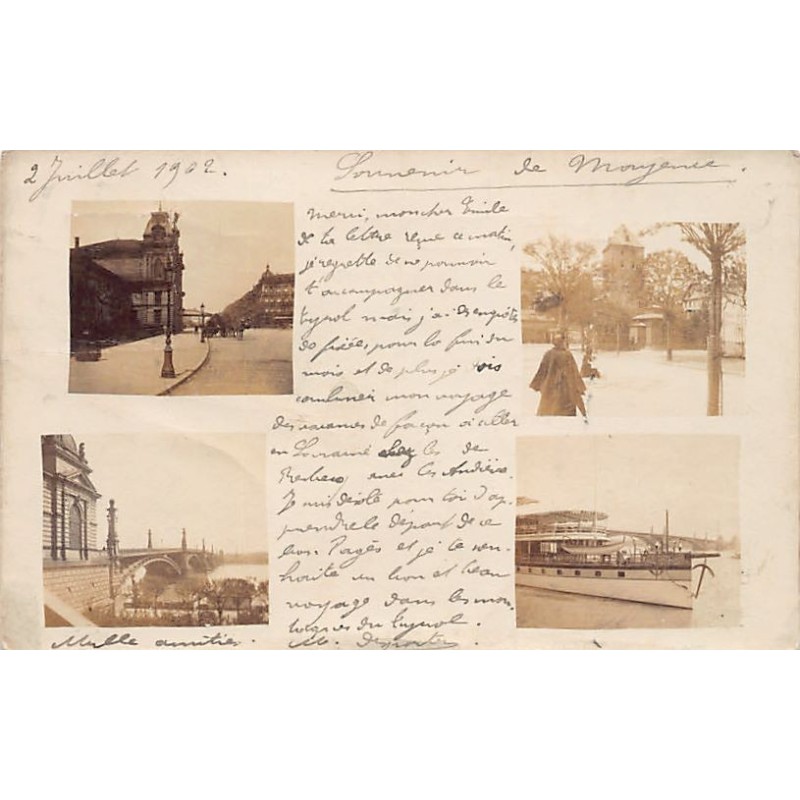 2 Juillet 1902.
Souvenir de Mayence.
Merci, mon cher Emile
de ta lettre reçue ce matin,
je regrette de ne pouvoir
t'accompagner dans le
Tyrol mais j'ai des
de pour la fin du
mois et de plus je dois
combiner mon voyage
des vacances de façon à aller
en Lorraine chez les de
avec les André.
Je suis désolé pour toi d'ap-
prendre le départ de ce
bon Pagès et je te sou-
haite un bon et beau
voyage dans les mon-
tagnes du Tyrol.
Mille amitiés.
M.